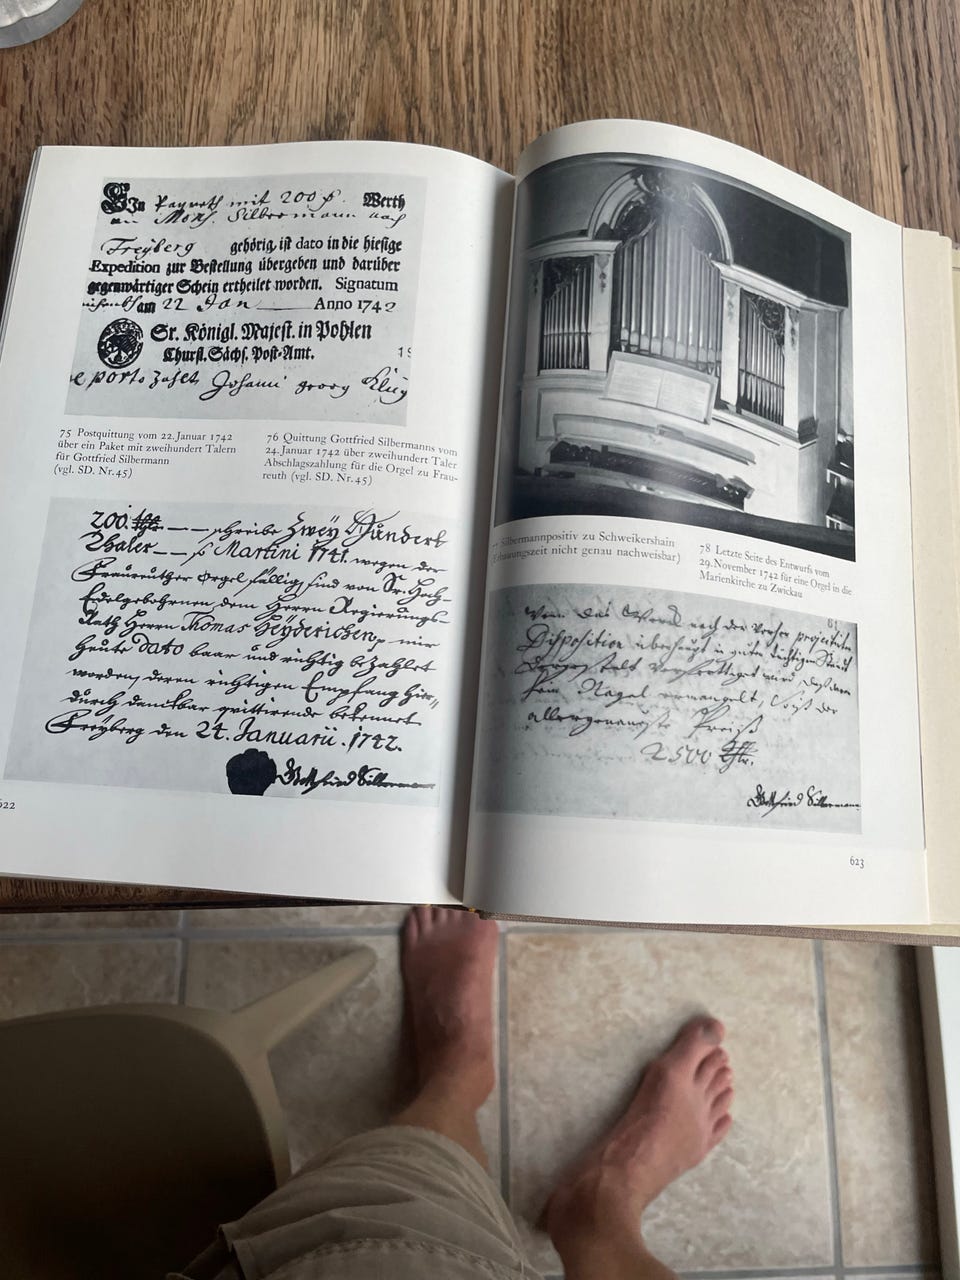 Ein Paqueth mit 200 f. Werth
an Mons. Silbermann nach
Freyberg gehörig, ist dato in die hiesige
Expedition zur Bestellung übergeben und darüber
gegenwärtiger Schein ertheilet worden. Signatum
am 22 Jan Anno 1742
Sr. Königl. Majest. in Pohlen
Churfl. Sächs. Post-Amt.
porto zahlt Johann georg
75 Postquittung vom 22. Januar 1742
über ein Paket mit zweihundert Talern
für Gottfried Silbermann
(vgl. SD. Nr. 45)
76 Quittung Gottfried Silbermanns vom
24. Januar 1742 über zweihundert Taler
Abschlagszahlung für die Orgel zu Frau-
reuth (vgl. SD. Nr. 45)
200 thlr. — — schreibe Zwey Hundert
Thaler — — Martini 1741. wegen der
Fraureuther Orgel fällig, sind von Sr. Hoch-
Edelgebohrnen dem Herrn Regierungs-
Rath Herrn Thomas Heyderichen, mir
heute dato baar und richtig bezahlet
worden, deren richtigen Empfang hier,,
durch danckbar quittirende bekennet
Freyberg den 24. Januarii. 1742.
Gottfried Silbermann
622
Silbermannpositiv zu Schweikershain
(Erbauungszeit nicht genau nachweisbar)
78 Letzte Seite des Entwurfs vom
29. November 1742 für eine Orgel in die
Marienkirche zu Zwickau
Wenn das Werck nach der projectirten
Disposition überhaupt in guten tüchtigen Stand
dergestalt verfertiget wird, daß
kein Nagel ermangelt, ist der
allergenaueste Preiß
2500 Thlr.
Gottfried Silbermann
623